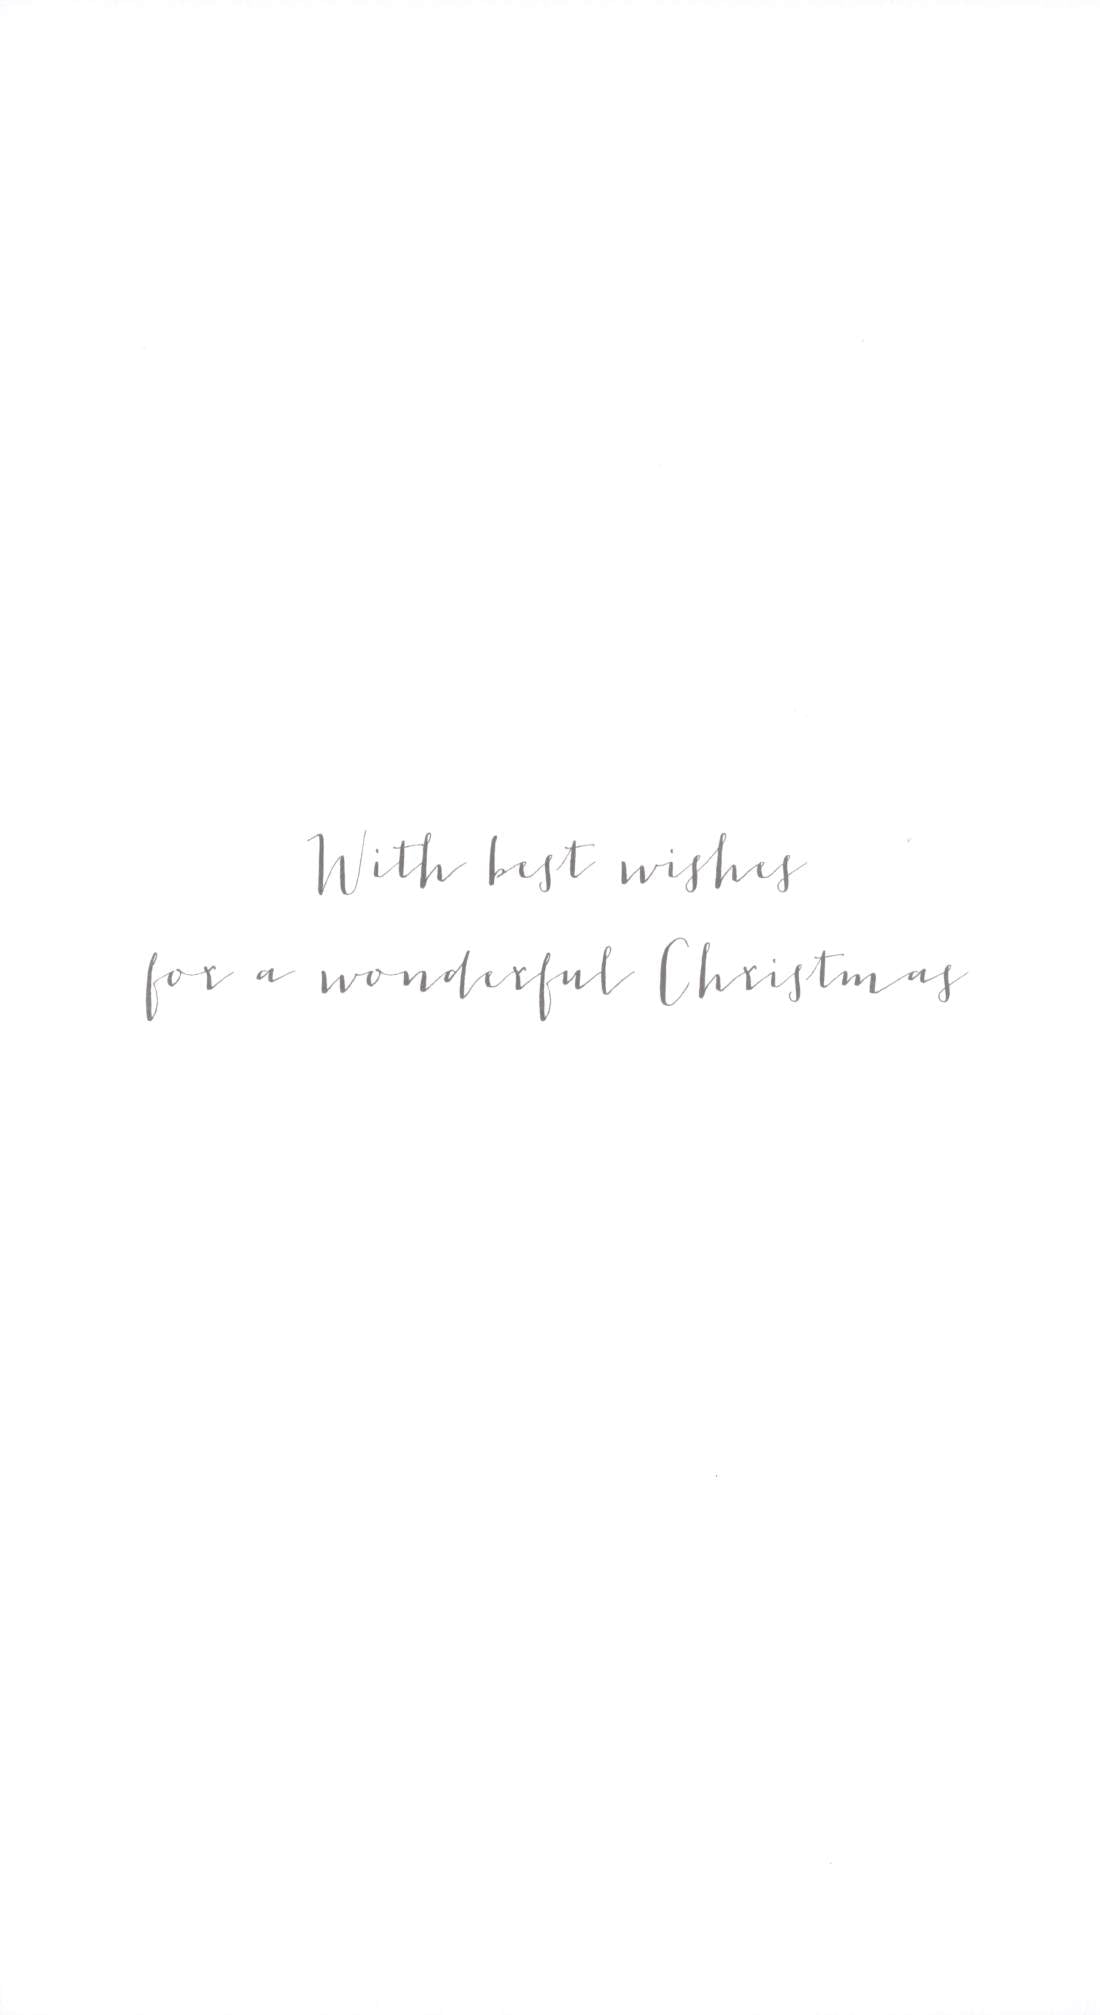 With best wishes
for a wonderful Christmas